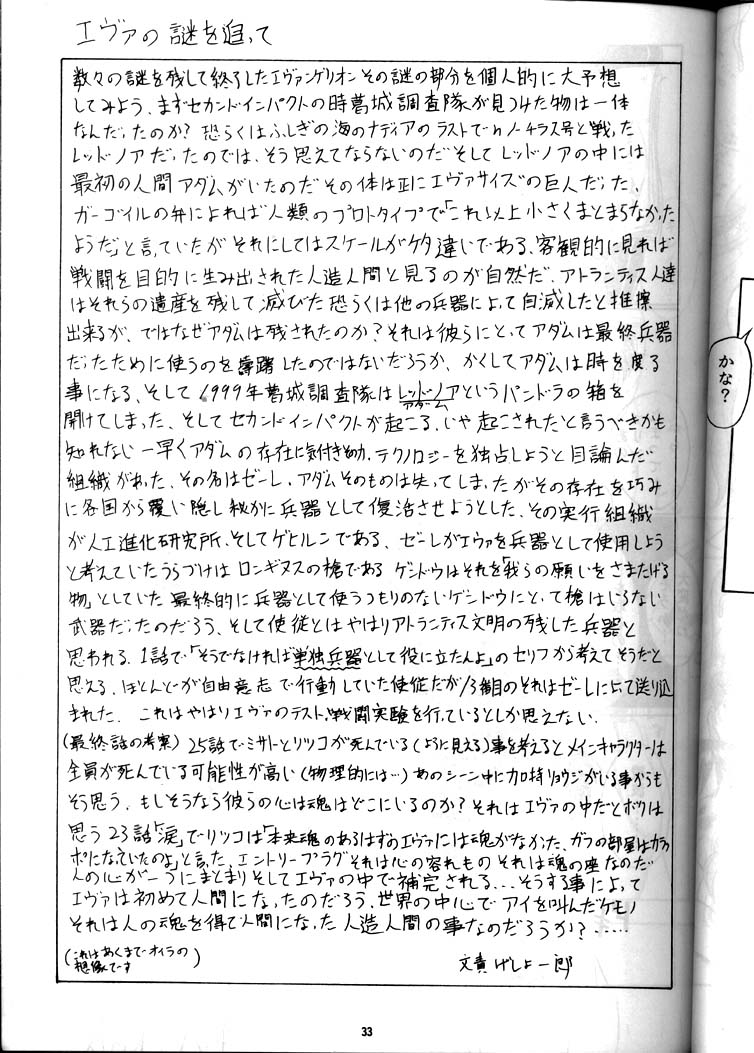 エヴァの謎を追って
数々の謎を残して終了したエヴァンゲリオンその謎の部分を個人的に大予想
してみよう、まずセカンドインパクトの時葛城調査隊が見つけた物は一体
なんだったのか?恐らくはふしぎの海のナディアのラストでnノーチラス号と戦った
レッドノアだったのでは、そう思えてならないのだそしてレッドノアの中には
最初の人間アダムがいたのだその体は正にエヴァサイズの巨人だった、
ガーゴイルの弁によれば人類のプロトタイプで「これ以上小さくまとまらなかった
ようだ」と言っていたがそれにしてはスケールがケタ違いである、客観的に見れば
戦闘を目的に生み出された人造人間と見るのが自然だ、アトランティス人達
はそれらの遺産を残して滅びた恐らくは他の兵器によって自滅したと推察
出来るが、ではなぜアダムは残されたのか?それは彼らにとってアダムは最終兵器
だったために使うのを躊躇したのではないだろうか、かくしてアダムは時を渡る
事になる、そして1999年葛城調査隊はレッドノアというパンドラの箱を
アダム
開けてしまった、そしてセカンドインパクトが起こる、いや起こされたと言うべきかも
知れない一早くアダムの存在に気付き始め、テクノロジーを独占しようと目論んだ
組織があった、その名はゼーレ、アダムそのものは失ってしまったがその存在を巧みに
に各国から覆い隠し秘かに兵器として復活させようとした、その実行組織
が人工進化研究所、そしてゲヒルンである、ゼーレがエヴァを兵器として使用しよう
と考えていたうらづけはロンギヌスの槍であるゲンドウはそれを「我らの願いをさまたげる
物」としていた最終的に兵器として使うつもりのないゲンドウにとって槍はいらない
武器だったのだろう、そして使徒とはやはりアトランティス文明の残した兵器と
思われる、1話で「そうでなければ単独兵器として役に立たんよ」のセリフから考えてそうだと
思える、ほとんどが自由意志で行動していた使徒だが13番目のそれはゼーレによって送り込
まれた、これはやはりエヴァのテスト、戦闘実験を行っているとしか思えない、
(最終話の考察)25話でミサトとリツコが死んでいる(ように見える)事を考えるとメインキャラクターは
全員が死んでいる可能性が高い(物理的には…)あのシーン中に加持リョウジがいる事からも
そう思う、もしそうなら彼らの心は魂はどこにいるのか?それはエヴァの中だとボクは
思う23話「涙」でリツコは「本来魂のあるはずのエヴァには魂がなかった、ガフの部屋はカラッ
ポになっていたのよ」と言った、エントリープラグそれは心の容れものそれは魂の座なのだ
人の心が一つにまとまりそしてエヴァの中で補完される…そうする事によって
エヴァは初めて人間になったのだろう、世界の中心でアイを叫んだケモノ
それは人の魂を得て人間になった人造人間の事なのだろうか?……
(これはあくまでオイラの
想像です)
文責 げしょ一郎
33
かな?